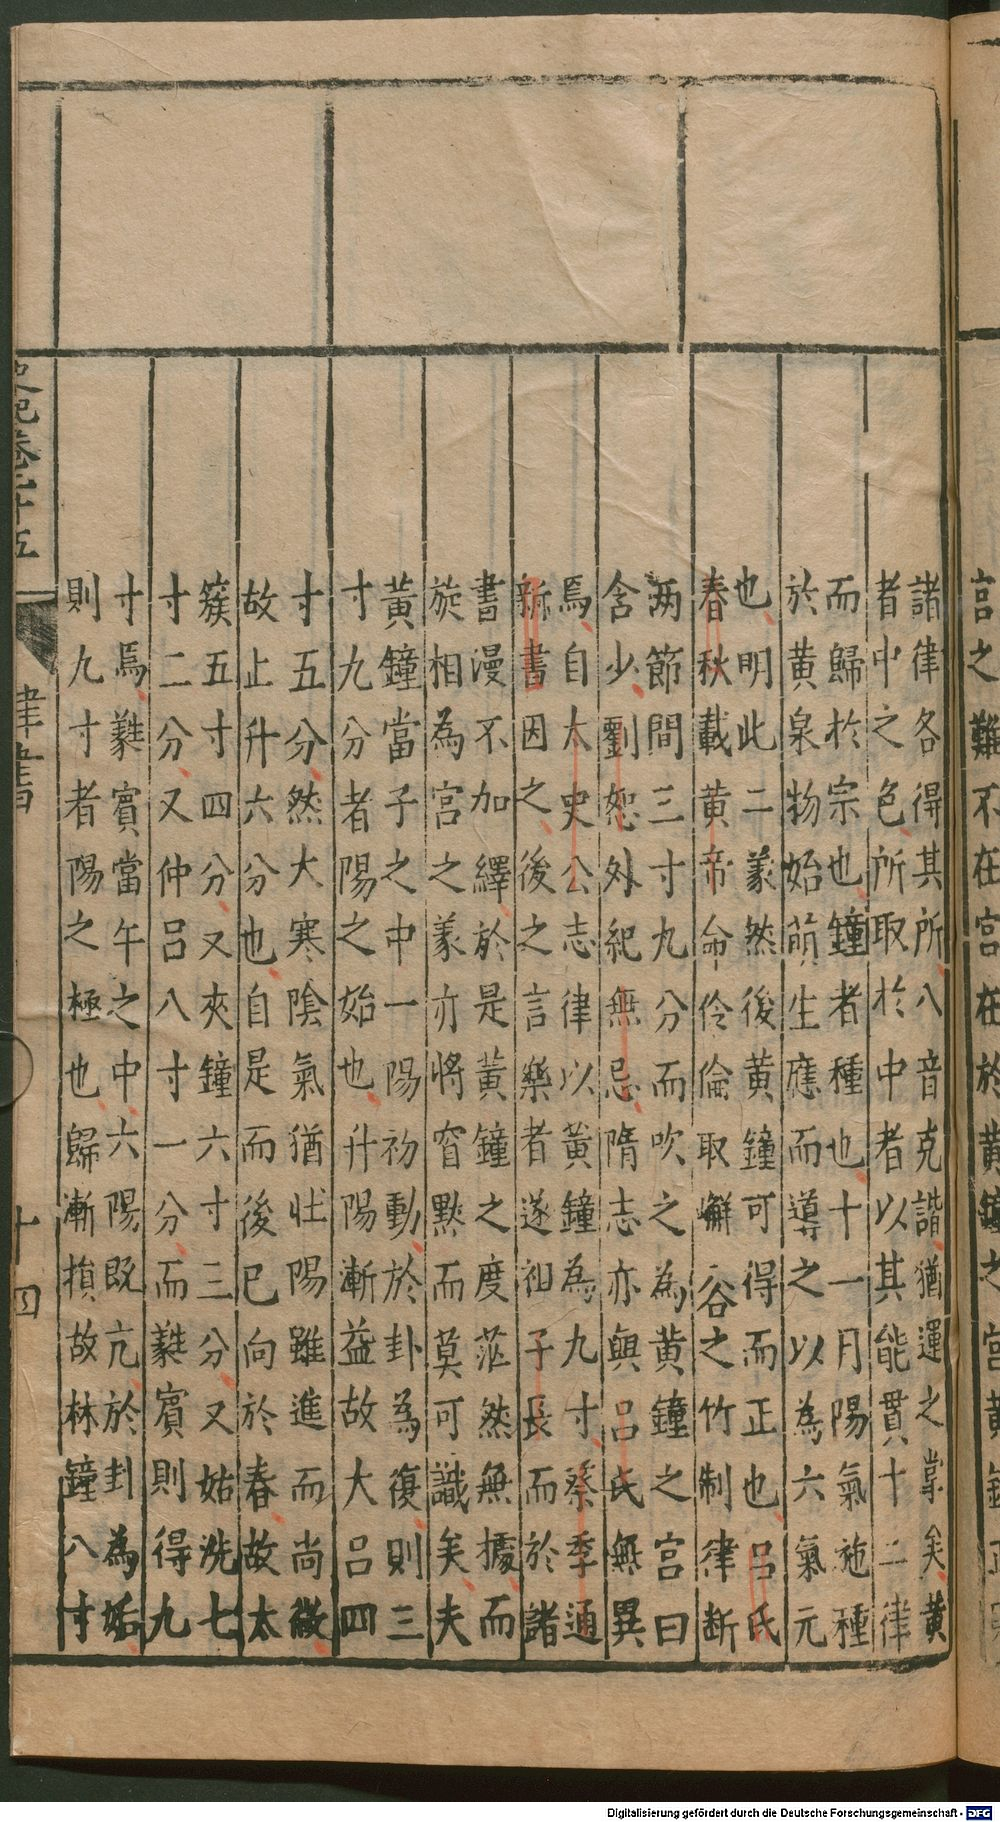 宮之難不在宮在於黃鐘之宮黃鐘正
諸律各得其所八音克諧猶運之掌矣黃
者中之色所取於中者以其能貫十二律
而歸於宗也鐘者種也十一月陽氣施種
於黃泉物始萌生應而導之以為六氣元
也明此二義然後黃鐘可得而正也呂氏
春秋載黃帝命伶倫取嶰谷之竹制律斷
兩節間三寸九分而吹之為黃鐘之宮曰
含少劉恕外紀無忌隋志亦與呂氏無異
焉自太史公志律以黃鐘為九寸蔡季通
新書因之後之言樂者遂祖子長而於諸
書漫不加繹於是黃鐘之度茫然無據而
旋相為宮之義亦將窅默而莫可識矣夫
黃鐘當子之中一陽初動於卦為復則三
寸九分者陽之始也升陽漸益故大呂四
寸五分然大寒陰氣猶壯陽雖進而尚微
故止升六分也自是而後已向於春故太
簇五寸四分又夾鐘六寸三分又姑洗七
寸二分又仲呂八寸一分而蕤賓則得九
寸焉蕤賓當午之中六陽既亢於卦為姤
則九寸者陽之極也歸漸損故林鐘八寸
史記卷二十五
律書
十四
Digitalisierung gefördert durch die Deutsche Forschungsgemeinschaft - DFG